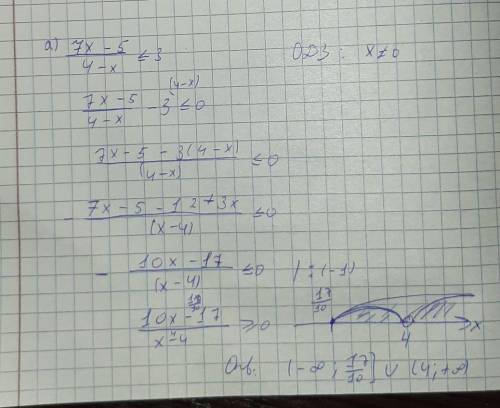 а) (7x - 5)/(4 - x) ≤ 3 ОДЗ: x ≠ 0
(7x - 5)/(4 - x) - 3^(4-x) ≤ 0
(7x - 5 - 3(4 - x))/(4 - x) ≤ 0
- (7x - 5 - 12 + 3x)/(x - 4) ≤ 0
- (10x - 17)/(x - 4) ≤ 0 | : (-1)
(10x - 17)/(x - 4) ≥ 0
17/10 4 x
Отв. (-∞; 17/10] ∪ (4; +∞)